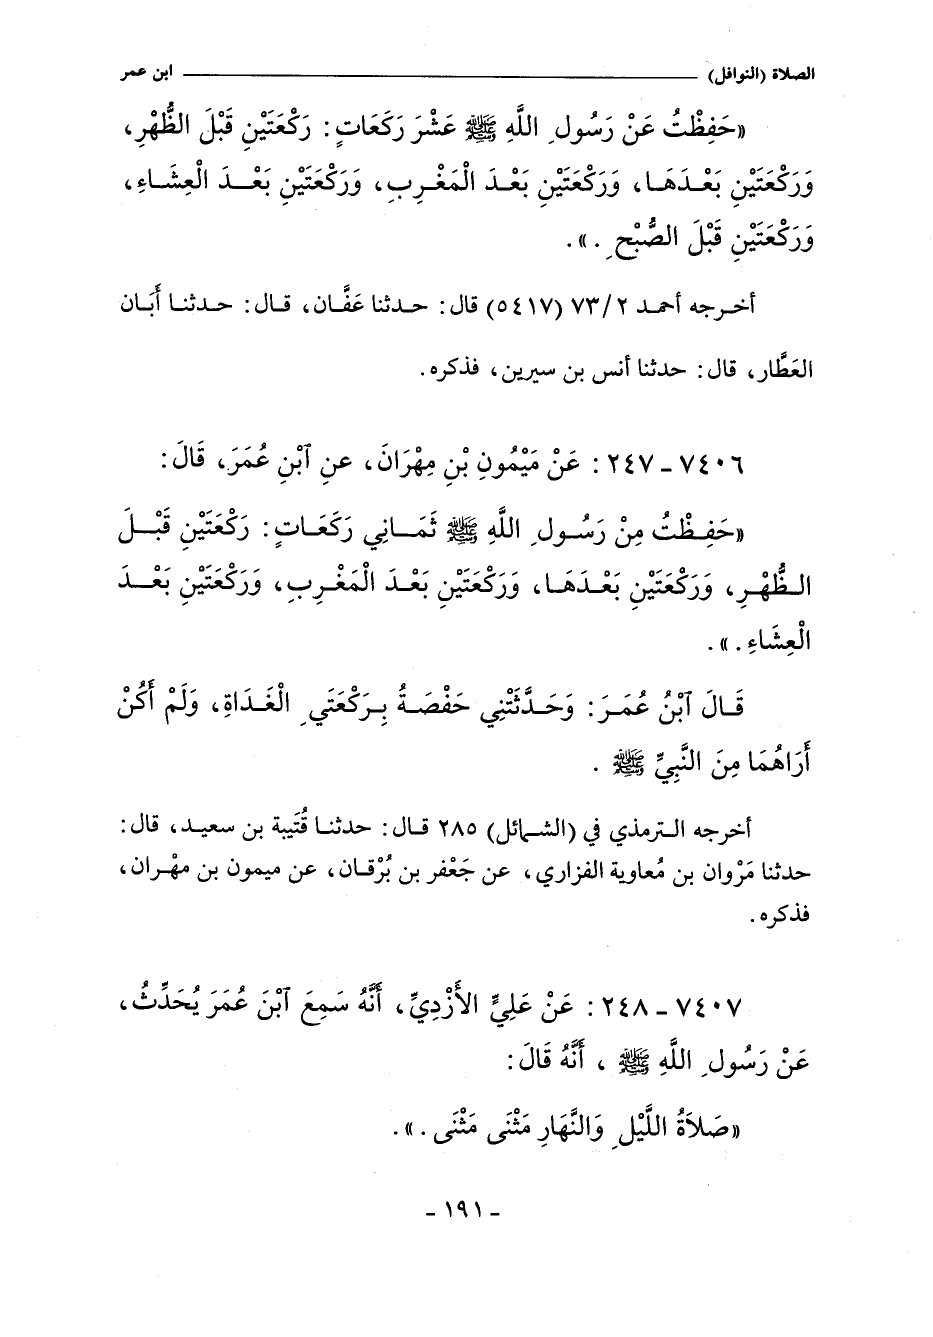 الصلاة (النوافل) ــــــــــــــــــــ ابن عمر
«حَفِظْتُ عَنْ رَسُولِ اللَّهِ ﷺ عَشْرَ رَكَعَاتٍ: رَكْعَتَيْنِ قَبْلَ الظُّهْرِ،
وَرَكْعَتَيْنِ بَعْدَهَا، وَرَكْعَتَيْنِ بَعْدَ الْمَغْرِبِ، وَرَكْعَتَيْنِ بَعْدَ الْعِشَاءِ،
وَرَكْعَتَيْنِ قَبْلَ الصُّبْحِ.».
أخرجه أحمد ٢/٧٣ (٥٤١٧) قال: حدثنا عَفَّان، قال: حدثنا أَبَان
العَطَّار، قال: حدثنا أنس بن سيرين، فذكره.
٧٤٠٦ـ٢٤٧: عَنْ مَيْمُونِ بْنِ مِهْرَانَ، عنِ ٱبْنِ عُمَرَ، قَالَ:
«حَفِظْتُ مِنْ رَسُولِ اللَّهِ ﷺ ثَمَانِي رَكَعَاتٍ: رَكْعَتَيْنِ قَبْلَ
الظُّهْرِ، وَرَكْعَتَيْنِ بَعْدَهَا، وَرَكْعَتَيْنِ بَعْدَ الْمَغْرِبِ، وَرَكْعَتَيْنِ بَعْدَ
الْعِشَاءِ.».
قَالَ ٱبْنُ عُمَرَ: وَحَدَّثَتْنِي حَفْصَةُ بِرَكْعَتَيِ الْغَدَاةِ، وَلَمْ أَكُنْ
أَرَاهُمَا مِنَ النَّبِيِّ ﷺ .
أخرجه الترمذي في (الشمائل) ٢٨٥ قال: حدثنا قُتَيبة بن سعيد، قال:
حدثنا مَرْوان بن مُعاوية الفزاري، عن جَعْفر بن بُرْقان، عن ميمون بن مهْران،
فذكره.
٧٤٠٧ـ٢٤٨: عَنْ عَلِيٍّ الأَزْدِيِّ، أَنَّهُ سَمِعَ ٱبْنَ عُمَرَ يُحَدِّثُ،
عَنْ رَسُولِ اللَّهِ ﷺ ، أَنَّهُ قَالَ:
«صَلاَةُ اللَّيْلِ وَالنَّهَارِ مَثْنَى مَثْنَى.».
ـ ١٩١ ـ